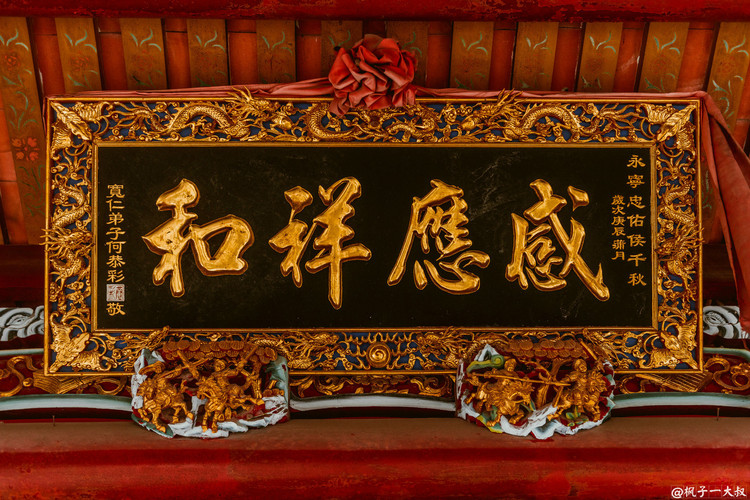 永寧忠佑侯千秋
歲次庚辰蒲月
感應祥和
寬仁弟子何恭彩
敬
@枫子一大叔